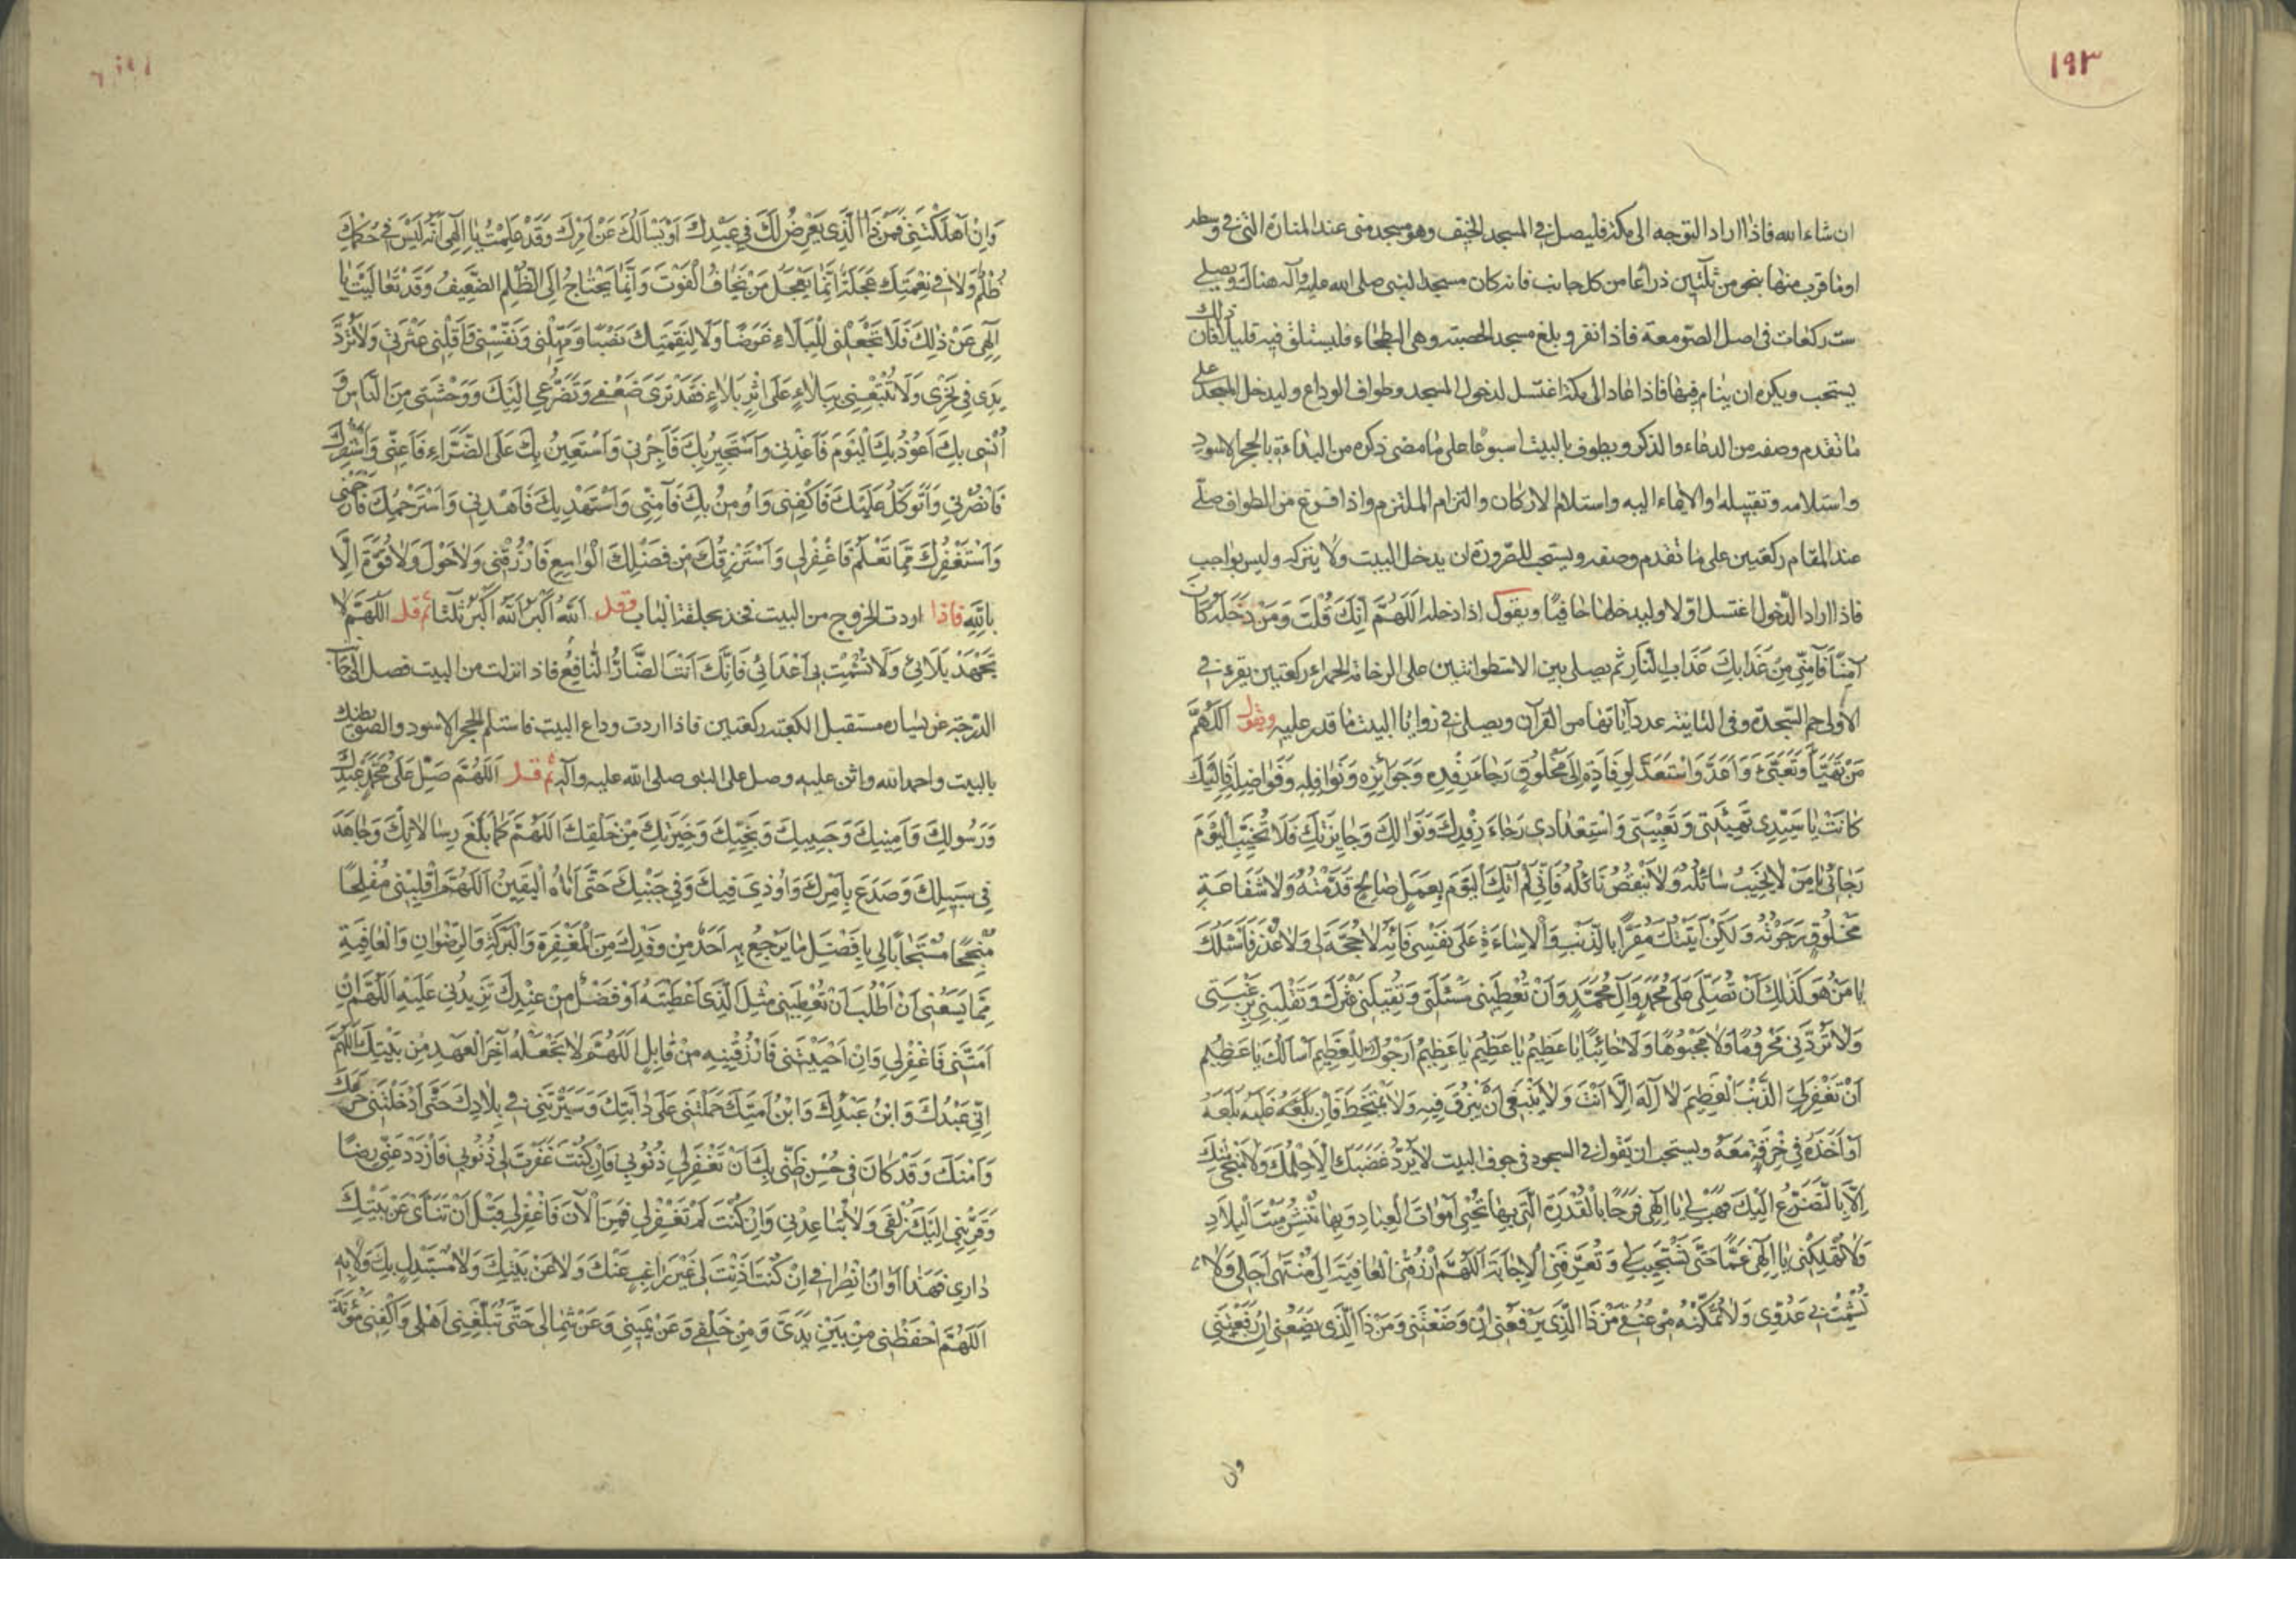 ١٩٣
ان شاء الله فاذا اراد التوجه الى مكة فليصل في المسجد الخيف وهو مسجد منى عند المنارة التي في وسطه
او ما قرب منها بنحو من ثلثين ذراعا من كل جانب فانه كان مسجد النبي صلى الله عليه وآله هناك ويصلي
ست ركعات في اصل الصومعة فاذا نفر وبلغ مسجد الحصبة وهي البطحاء فليستلق فيه قليلا فان ذلك
يستحب ويكره ان ينام فيها فاذا عاد الى مكة اغتسل لدخول المسجد وطواف الوداع وليدخل المسجد على
ما تقدم وصفه من الدعاء والذكر ويطوف بالبيت اسبوعا على ما مضى ذكره من البداءة بالحجر الاسود
واستلامه وتقبيله او الايماء اليه واستلام الاركان والتزام الملتزم واذا فرغ من الطواف صلّى
عند المقام ركعتين على ما تقدم وصفه ويستحب للصرورة ان يدخل البيت ولا يتركه وليس بواجب
فاذا اراد الدّخول اغتسل اوّلا وليدخلها حافيًا ويقول اذا دخله اَللّهُمَّ اِنَّكَ قُلْتَ وَمَنْ دَخَلَهُ كَانَ
آمِنًا فَآمِنّي مِنْ عَذَابِكَ عَذَابِ النَّارِ ثم يصلي بين الاسطوانتين على الرخامة الحمراء ركعتين يقرء في
الاولى حم السّجدة وفي الثانية عدد آياتها من القرآن ويصلي في زوايا البيت ما قدر عليه ويقول اَللّهُمَّ
مَنْ تَهَيَّأَ وَتَعَبَّئَ وَاَعَدَّ وَاسْتَعَدَّ لِوِفَادَةٍ اِلى مَخْلُوقٍ رَجَاءَ رِفْدِهِ وَجَوَائِزِهِ وَنَوَافِلِهِ وَفَوَاضِلِهِ فَاِلَيْكَ
كَانَتْ يَا سَيِّدِي تَهْيِئَتِي وَتَعْبِيَتِي وَاسْتِعْدَادِي رَجَاءَ رِفْدِكَ وَنَوَالِكَ وَجَايِزَتِكَ فَلَا تُخَيِّبِ الْيَوْمَ
رَجَائِي يَا مَنْ لَا يَخِيبُ سَائِلُهُ وَلَا يَنْقُصُ نَائِلُهُ فَاِنّي لَمْ آتِكَ الْيَوْمَ بِعَمَلٍ صَالِحٍ قَدَّمْتُهُ وَلَا شَفَاعَةِ
مَخْلُوقٍ رَجَوْتُهُ وَلَكِنْ اَتَيْتُكَ مُقِرًّا بِالذَّنْبِ وَالْاِسَاءَةِ عَلَى نَفْسِي فَاِنَّهُ لَا حُجَّةَ لِي وَلَا عُذْرَ فَاَسْئَلُكَ
يَا مَنْ هُوَ كَذَلِكَ اَنْ تُصَلِّيَ عَلَى مُحَمَّدٍ وَآلِ مُحَمَّدٍ وَاَنْ تُعْطِيَنِي مَسْئَلَتِي وَتُقِيلَنِي عَثْرَتي وَتَقْلِبَنِي بِرَغْبَتِي
وَلَا تَرُدَّنِي مَحْرُومًا وَلَا مَجْبُوهًا وَلَا خَائِبًا يَا عَظِيمُ يَا عَظِيمُ يَا عَظِيمُ اَرْجُوكَ لِلْعَظِيمِ اَسْأَلُكَ يَا عَظِيمُ
اَنْ تَغْفِرَ لِيَ الذَّنْبَ الْعَظِيمَ لَا اِلَهَ اِلَّا اَنْتَ وَلَا يَنْبَغِي اَنْ يَبْزُقَ فِيهِ وَلَا يَمْتَخِطَ فَاِنْ بَلَعَهُ
اَوْ اَخَذَهُ فِي خِرْقَةٍ مَعَهُ ويستحب ان يقول في السجود في جوف البيت لَا يَرُدُّ غَضَبَكَ اِلَّا حِلْمُكَ وَلَا يُنْجِي مِنْكَ
اِلَّا التَّضَرُّعُ اِلَيْكَ فَهَبْ لِي يَا اِلَهِي فَرَجًا بِالْقُدْرَةِ الَّتِي بِهَا تُحْيِي اَمْوَاتَ الْعِبَادِ وَبِهَا تَنْشُرُ مَيِّتَ الْبِلَادِ
وَلَا تُهْلِكْنِي يَا اِلَهِي غَمًّا حَتَّى تَسْتَجِيبَ لِي وَتُعَرِّفَنِي الْاِجَابَةَ اَللّهُمَّ ارْزُقْنِي الْعَافِيَةَ اِلَى مُنْتَهَى اَجَلِي وَلَا
تُشْمِتْ بِي عَدُوّي وَلَا تُمَكِّنْهُ مِنْ عُنُقِي مَنْ ذَا الَّذِي يَرْفَعُنِي اِنْ وَضَعْتَنِي وَمَنْ ذَا الَّذِي يَضَعُنِي اِنْ رَفَعْتَنِي
وان
وَاِنْ اَهْلَكْتَنِي فَمَنْ ذَا الَّذِي يَعْرِضُ لَكَ فِي عَبْدِكَ اَوْ يَسْأَلُكَ عَنْ اَمْرِكَ وَقَدْ عَلِمْتُ يَا اِلَهِي اَنَّهُ لَيْسَ فِي حُكْمِكَ
ظُلْمٌ وَلَا فِي نِقْمَتِكَ عَجَلَةٌ اِنَّمَا يَعْجَلُ مَنْ يَخَافُ الْفَوْتَ وَاِنَّمَا يَحْتَاجُ اِلَى الظُّلْمِ الضَّعِيفُ وَقَدْ تَعَالَيْتَ يَا
اِلَهِي عَنْ ذَلِكَ فَلَا تَجْعَلْنِي لِلْبَلَاءِ غَرَضًا وَلَا لِنَقِمَتِكَ نَصْبًا وَمَهِّلْنِي وَنَفِّسْنِي وَاَقِلْنِي عَثْرَتِي وَلَا تَرُدَّ
يَدِي فِي نَحْرِي وَلَا تُتْبِعْنِي بِبَلَاءٍ عَلَى اَثَرِ بَلَاءٍ فَقَدْ تَرَى ضَعْفِي وَتَضَرُّعِي اِلَيْكَ وَوَحْشَتِي مِنَ النَّاسِ وَ
اُنْسِي بِكَ اَعُوذُ بِكَ الْيَوْمَ فَاَعِذْنِي وَاَسْتَجِيرُ بِكَ فَاَجِرْنِي وَاَسْتَعِينُ بِكَ عَلَى الضَّرَّاءِ فَاَعِنّي وَاَسْتَنْصِرُكَ
فَانْصُرْنِي وَاَتَوَكَّلُ عَلَيْكَ فَاكْفِنِي وَاُومِنُ بِكَ فَآمِنّي وَاَسْتَهْدِيكَ فَاهْدِنِي وَاَسْتَرْحِمُكَ فَارْحَمْنِي
وَاَسْتَغْفِرُكَ مِمَّا تَعْلَمُ فَاغْفِرْ لِي وَاَسْتَرْزِقُكَ مِنْ فَضْلِكَ الْوَاسِعِ فَارْزُقْنِي وَلَا حَوْلَ وَلَا قُوَّةَ اِلَّا
بِاللّهِ فاذا اردت الخروج من البيت فخذ بحلقة الباب وقل اَللّهُ اَكْبَرُ اَللّهُ اَكْبَرُ ثلثا ثم قل اَللّهُمَّ لَا
تَجْهَدْ بَلَائِي وَلَا تُشْمِتْ بِي اَعْدَائِي فَاِنَّكَ اَنْتَ الضَّارُّ النَّافِعُ فاذا نزلت من البيت فصل الى جانب
الدّرجة عن يساره مستقبل الكعبة ركعتين فاذا اردت وداع البيت فاستلم الحجر الاسود والصق بطنك
بالبيت واحمد الله واثن عليه وصل على النبي صلى الله عليه وآله ثم قل اَللّهُمَّ صَلِّ عَلَى مُحَمَّدٍ عَبْدِكَ
وَرَسُولِكَ وَاَمِينِكَ وَحَبِيبِكَ وَنَجِيِّكَ وَخِيَرَتِكَ مِنْ خَلْقِكَ اَللّهُمَّ كَمَا بَلَّغَ رِسَالَاتِكَ وَجَاهَدَ
فِي سَبِيلِكَ وَصَدَعَ بِاَمْرِكَ وَاُوذِيَ فِيكَ وَفِي جَنْبِكَ حَتَّى اَتَاهُ الْيَقِينُ اَللّهُمَّ اقْلِبْنِي مُفْلِحًا
مُنْجِحًا مُسْتَجَابًا لِي بِاَفْضَلِ مَا يَرْجِعُ بِهِ اَحَدٌ مِنْ وَفْدِكَ مِنَ الْمَغْفِرَةِ وَالْبَرَكَةِ وَالرِّضْوَانِ وَالْعَافِيَةِ
مِمَّا يَسَعُنِي اَنْ اَطْلُبَ اَنْ تُعْطِيَنِي مِثْلَ الَّذِي اَعْطَيْتَهُ اَوْ فَضْلًا مِنْ عِنْدِكَ تَزِيدُنِي عَلَيْهِ اَللّهُمَّ اِنْ
اَمَتَّنِي فَاغْفِرْ لِي وَاِنْ اَحْيَيْتَنِي فَارْزُقْنِيهِ مِنْ قَابِلٍ اَللّهُمَّ لَا تَجْعَلْهُ آخِرَ الْعَهْدِ مِنْ بَيْتِكَ اَللّهُمَّ
اِنّي عَبْدُكَ وَابْنُ عَبْدِكَ وَابْنُ اَمَتِكَ حَمَلْتَنِي عَلَى دَابَّتِكَ وَسَيَّرْتَنِي فِي بِلَادِكَ حَتَّى اَدْخَلْتَنِي حَرَمَكَ
وَاَمْنَكَ وَقَدْ كَانَ فِي حُسْنِ ظَنّي بِكَ اَنْ تَغْفِرَ لِي ذُنُوبِي فَاِنْ كُنْتَ غَفَرْتَ لِي ذُنُوبِي فَازْدَدْ عَنّي رِضًا
وَقَرِّبْنِي اِلَيْكَ زُلْفَى وَلَا تُبَاعِدْنِي وَاِنْ كُنْتَ لَمْ تَغْفِرْ لِي فَمِنَ الْآنَ فَاغْفِرْ لِي قَبْلَ اَنْ تَنْاَى عَنْ بَيْتِكَ
دَارِي فَهَذَا اَوَانُ انْصِرَافِي اِنْ كُنْتَ اَذِنْتَ لِي غَيْرَ رَاغِبٍ عَنْكَ وَلَا عَنْ بَيْتِكَ وَلَا مُسْتَبْدِلٍ بِكَ وَلَا بِهِ
اَللّهُمَّ احْفَظْنِي مِنْ بَيْنِ يَدَيَّ وَمِنْ خَلْفِي وَعَنْ يَمِينِي وَعَنْ شِمَالِي حَتَّى تُبَلِّغَنِي اَهْلِي وَاكْفِنِي مَؤُنَةَ